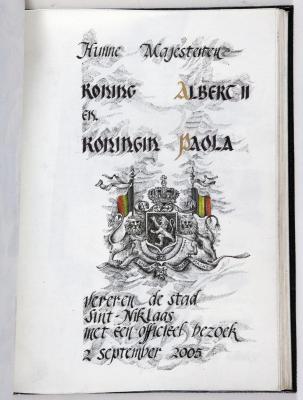 Hunne Majesteiten
KONING ALBERT II
EN
KONINGIN PAOLA
vereren de stad
Sint-Niklaas
met een officieel bezoek
2 september 2005